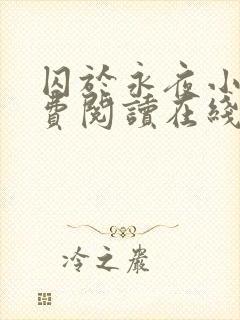 囚於永夜小
費閱讀在綫
冷之嚴